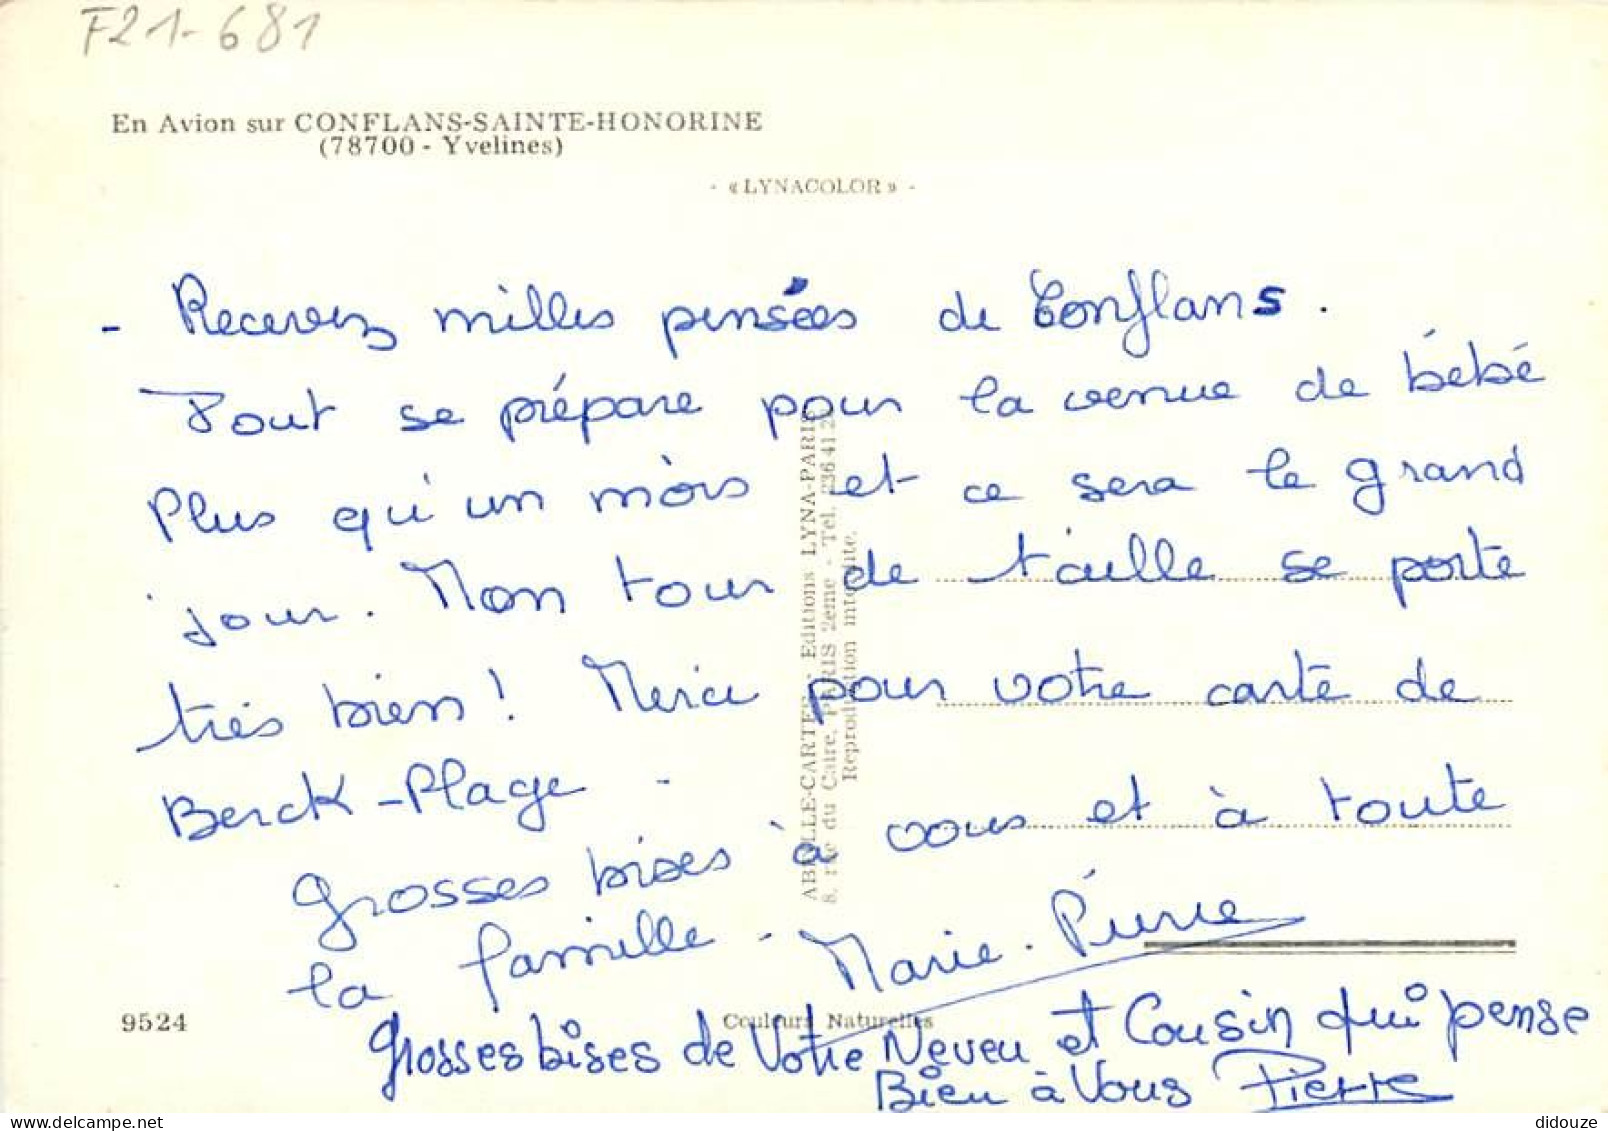 F21-681
En Avion sur CONFLANS-SAINTE-HONORINE
(78700 - Yvelines)
- «LYNACOLOR» -
- Recevez milles pensées de Conflans.
Tout se prépare pour la venue de bébé
Plus qu'un mois et ce sera le grand
jour. Mon tour de taille se porte
très bien! Merci pour votre carte de
Berck-Plage -
Grosses bises à vous et à toute
la famille. Marie-Pierre
Grosses bises de Votre Neveu et Cousin qui pense
Bien à Vous Pierre
ABEILLE-CARTES - Editions LYNA-PARIS
8, rue du Caire, PARIS 2eme - Tel. 236 41 2
Reproduction interdite.
9524
Couleurs Naturelles
didouze